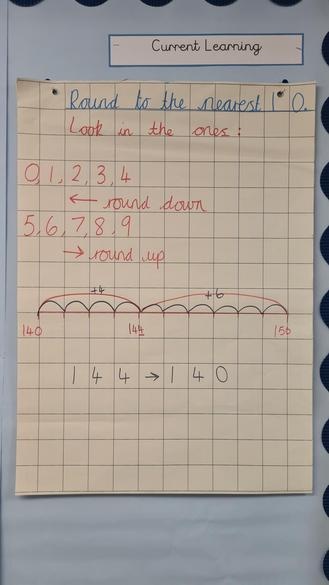 Current Learning
Round to the nearest 10.
Look in the ones:
0, 1, 2, 3, 4
← round down
5, 6, 7, 8, 9
→ round up
+4 +6
140 144 150
144 → 140